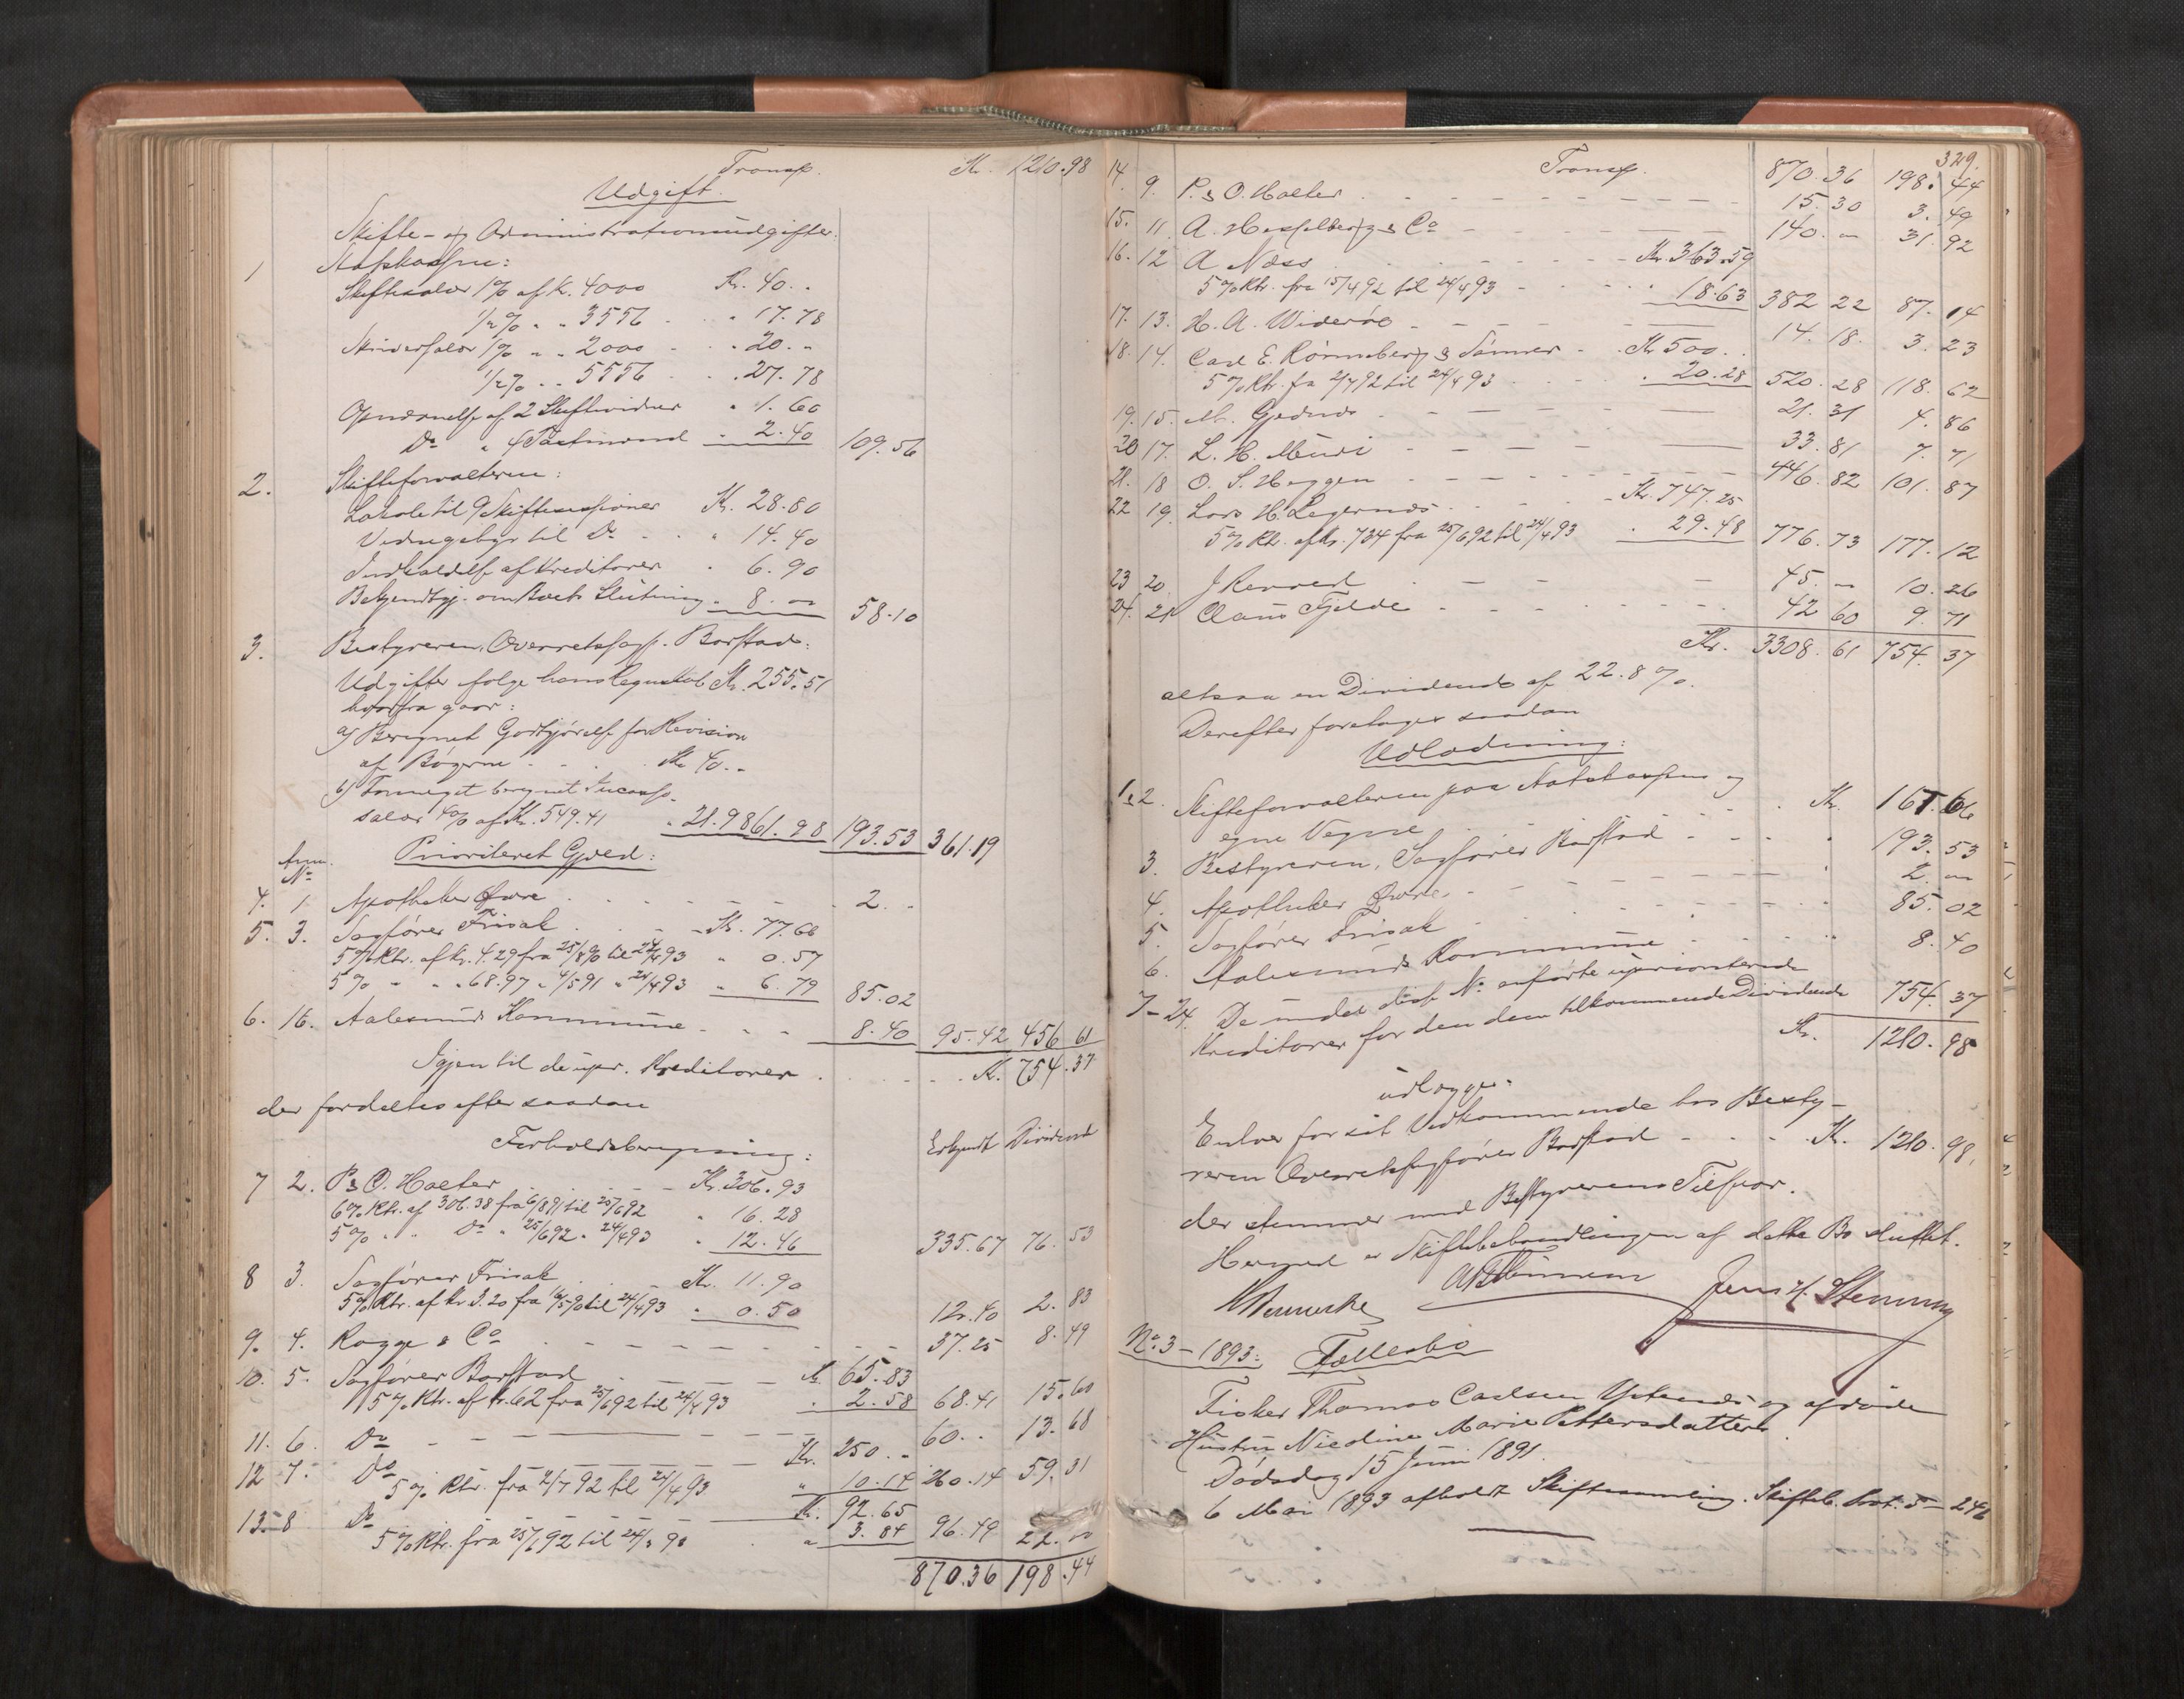 Transp. Kr. 1210.98
Udgift.
Skifte- og Administrationsudgifter.
1 Statskassen:
Skiftesalær 1% af K. 4000 Kr. 40. "
1/2% " " 3556 " 17.78
1% " " 2000 " 20. "
1/2% " " 5556 " 27.78
af 2 Skiftevidner " 1.60
Do " 2.40 109.56
2. Skifteforvalteren:
Lokale til 9 Skiftesessioner Kr. 28.80
til Do " 14.40
Indkaldelse af Kreditorer " 6.90
Bekjendtgj. om Boets Slutning " 8. " 58.10
3. Bestyreren, Overretssagf. Borstad:
Udgifter følge hans Regnskab Kr. 255.51
hvorfra gaar:
a) Beregnet Godtgjørelse for Revision
af Bøgerne Kr. 40. "
b) Formeget beregnet Incasso-
salær 4% af Kr. 549.41 " 21.98 61.98 193.53 361.19
Anm. No Prioriteret Gjæld:
4. 1. Apotheker Øwre 2. "
5. 3. Sagfører Frisak Kr. 77.66
5% Rtr. af Kr. 4.29 fra 25/8 90 til 24/4 93 " 0.57
5% " " " 68.97 " 4/5 91 " 24/4 93 " 6.79 85.02
6. 16. Aalesunds Kommune 8.40 95.42 456 61
Igjen til de upr. Kreditorer Kr. 754.37
der fordeltes efter saadan
Forholdsberegning: Dividende
7 2. P. & O. Holter Kr. 306.93
6% Rtr. af 306.38 fra 6/8 91 til 25/6 92 " 16.28
5% " " Do " 25/6 92 " 24/4 93 " 12.46 335.67 76.53
8 3. Sagfører Frisak Kr. 11.90
5% Rtr. af Kr 3.20 fra til 24/4 93 " 0.50 12.40 2.83
9. 4. Rogge & Co 37.25 8.49
10. 5. Sagfører Borstad Kr. 65.83
5% Rtr. af Kr. 62 fra 25/6 92 til 24/4 93 " 2.58 68.41 15.60
11. 6. Do 60. " 13.68
12 7. Do Kr. 250. "
5% Rtr. fra 2/7 92 til 24/4 93 " 10.14 260.14 59.31
13. 8 Do Kr. 92.65
5% Rtr. fra 25/6 92 til " 3.84 96.49 22. "
870.36 198.44
329.
Transp. 870.36 198.44
14. 9. P. & O. Holter 15.30 3.49
15. 11 A. Hesselberg & Co 140. " 31.92
16. 12 A Næss Kr. 363.59
5% Rtr. fra 15/4 92 til 24/4 93 18.63 382 22 87.14
17. 13. H. A. Widerøe 14.18. 3.23
18. 14. Carl E. Rønneberg & Sønner Kr 500. "
5% Rtr. fra 2/7 92 til 24/4 93 " 20.28 520.28 118.62
19. 15. M. 21.31 4.86
20 17. L. H. 33.81 7.71
21. 18 O. S. Heggen 446.82 101.87
22 19. Lars H. Kr. 747.25
5% Rtr. af Kr. 734 fra 25/6 92 til 24/4 93 " 29.48 776.73 177.12
23 20. J 45. " 10.26
24. 21 Claus Fjelde 42 60 9.71
Kr. 3308.61 754.37
altsaa en Dividende af 22.8%.
Derefter foretoges saadan
Udlodning:
1 & 2. Skifteforvalteren paa Statskassens og
egne Vegne Kr. 167.66
3. Bestyreren, Sagfører Borstad 193.53
4. Apotheker Øwre 2. "
5. Sagfører Frisak 85.02
6. Aalesunds Kommune 8.40
7-24. De under disse No anførte uprioriterede
Kreditorer for den dem tilkommende Dividende 754.37
Kr. 1210.98
udlægges
Enhver for sit Vedkommende hos Besty-
reren Overretssagfører Borstad Kr. 1210.98.
der stemmer med Bestyrerens Tilsvar.
Hermed er Skiftebehandlingen af dette Bo sluttet.
Jens H. Stenning
No. 3 - 1893: Fællesbo
Fisker Thomas Carlsen og afdøde
Hustru Nicoline Marie Pettersdatter.
Dødsdag 15 Juni 1891.
6 Mai 1893 afholdt Skiftesamling. Skifteb. Prot. 5 - 246